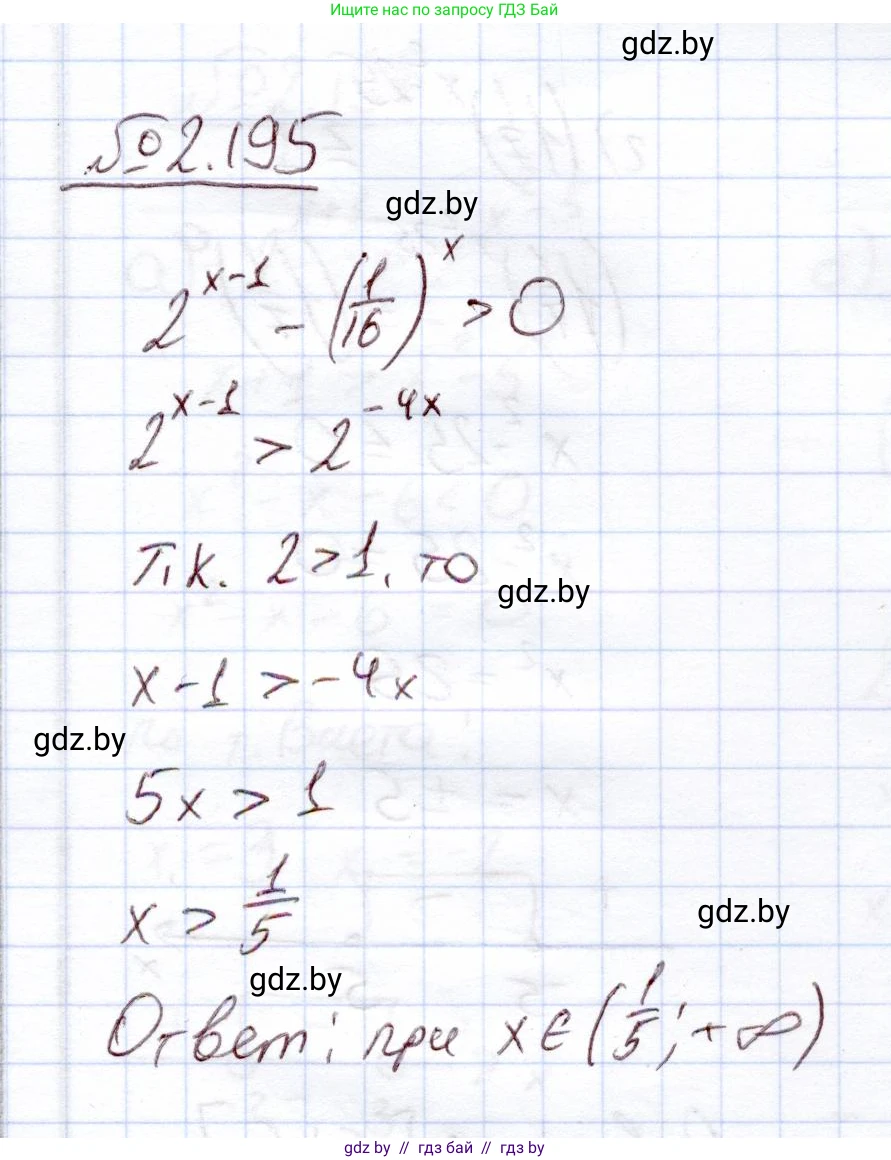 Ищите нас по запросу ГДЗ Бай
gdz.by
№2.195
gdz.by
2^{x-1} - (1/16)^x > 0
2^{x-1} > 2^{-4x}
т.к. 2 > 1, то
gdz.by
x - 1 > -4x
gdz.by
5x > 1
x > 1/5
gdz.by
gdz.by
Ответ: при x ∈ (1/5; +∞)
gdz.by // гдз бай // gdz.by